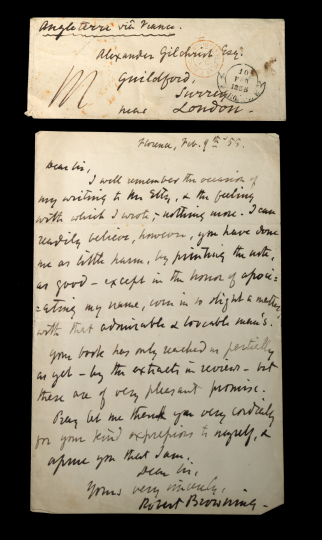 Angleterre viâ France.
Alexander Gilchrist Esqr.
Guildford,
Surrey
near London.
10
FEB
1855
Florence, Feb. 9th '55.
Dear Sir,
I well remember the occasion of
my writing to Mr Etty, & the feeling
with which I wrote, nothing more. I can
readily believe, however, you have done
me as little harm, by printing the note,
as good - except in the honor of associ=
=ating my name, even in so slight a matter
with that admirable & loveable man's.
Your book has only reached us partially
as yet - by the extracts in reviews - but
these are of very pleasant promise.
Pray let me thank you very cordially
for your kind expressions to myself, &
assure you that I am,
Dear Sir,
Yours very sincerely,
Robert Browning -